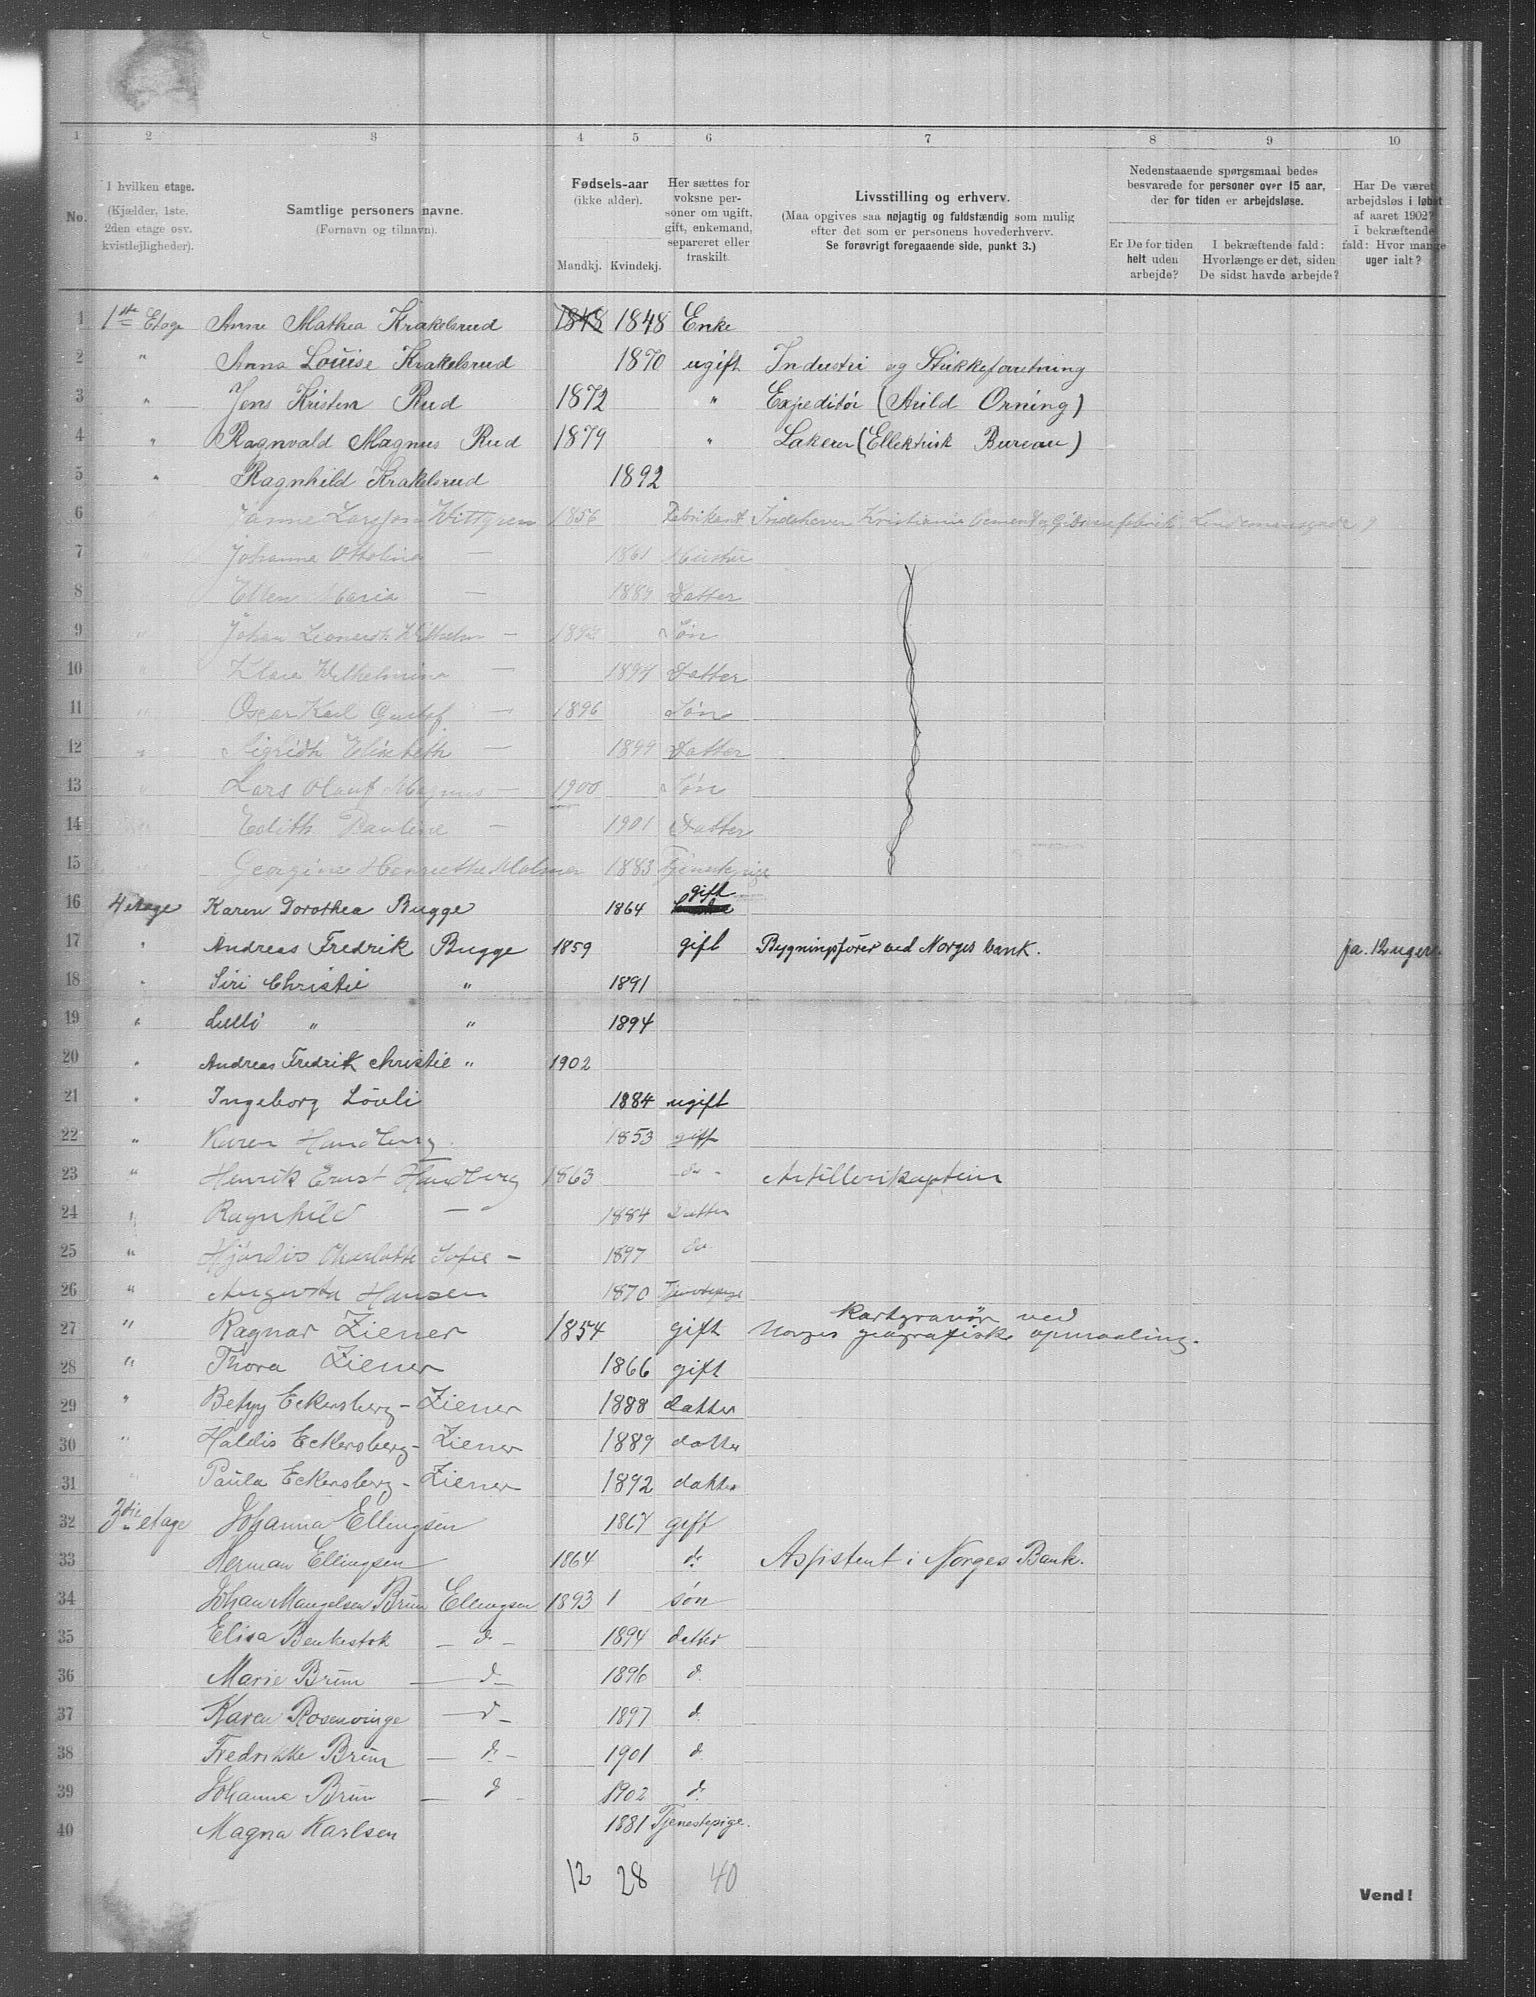 1 2 3 4 5 6 7 8 9 10
No.
I hvilken etage.
(Kjælder, 1ste, 2den etage osv. kvistlejligheder).
Samtlige personers navne.
(Fornavn og tilnavn).
Fødsels-aar
(ikke alder).
Mandkj. Kvindekj.
Her sættes for voksne personer om ugift, gift, enkemand, separeret eller fraskilt.
Livsstilling og erhverv.
(Maa opgives saa nøjagtig og fuldstændig som mulig
efter det som er personens hovederhverv.
Se forøvrigt foregaaende side, punkt 3.)
Nedenstaaende spørgsmaal bedes
besvarede for personer over 15 aar,
der for tiden er arbejdsløse.
Er De for tiden helt uden arbejde?
I bekræftende fald: Hvorlænge er det, siden De sidst havde arbejde?
Har De været arbejdsløs i løbet af aaret 1902? I bekræftende fald: Hvor mange uger ialt?
1 1ste Etage Anne Mathea Krakelsrud 1848 1848 Enke
2 " Anna Louise Krakelsrud 1870 ugift Industri og Strikkeforretning
3 " Jens Kristen Rud 1872 " Expeditör (Arild Orning)
4 " Ragnvald Magnus Rud 1879 " Lakerer (Ellektrisk Bureau)
5 " Ragnhild Krakelsrud 1892
6 " Janne Larsson Wittgren 1856 Fabrikant Indehaver Kristiania Cement
7 " Johanna Ottolina — 1861 Hustru
8 " Ellen Maria — 1889 Datter
9 " Johan Leonardt Wilhelm — Søn
10 " Klara Wilhelmina — 1894 Datter
11 " Oscar Karl Gustaf — 1896 Søn
12 " Sigridh Elisabeth — 1899 Datter
13 " Lars Olauf Magnus — 1900 Søn
14 " Edith Paulina — 1901 Datter
15 " Georgine Henriette Malmer 1883 Tjenestepige
16 4 etage Karen Dorothea Bugge 1864 gift
17 " Andreas Fredrik Bugge 1859 gift Bygningsfører ved Norges bank. ja. 12 uger.
18 " Siri Christie " 1891
19 " Lulli " " 1894
20 " Andreas Fredrik Christie " 1902
21 " Ingeborg Lövli 1884 ugift
22 " Karen Handberg 1853 gift
23 " Henrik Ernst Handberg 1863 do - Artillerikaptein
24 " Ragnhild — " 1884 Datter
25 " Hjördis Charlotte Sofie — 1897 do
26 " Augusta Hansen 1870 Tjenestepige
27 " Ragnar Ziener 1854 gift Kartgravör ved
Norges geografiske opmaaling.
28 " Thora Ziener 1866 gift
29 " Betzy Eckersberg - Ziener 1888 datter
30 " Haldis Eckersberg - Ziener 1889 datter
31 " Paula Eckersberg - Ziener 1892 datter
32 3die etage Johanna Ellingsen 1867 gift
33 Herman Ellingsen 1864 do Assistent i Norges Bank.
34 Johan Mangelsen Brun Ellingsen 1893 1 søn
35 Elisa Benkestok — d — 1894 datter
36 Marie Brun — d — 1896 d
37 Karen Rosenvinge — d — 1897 d
38 Fredrikke Brun — d — 1901 d
39 Johanna Brun — d — 1902 d
40 Magna Karlsen 1881 Tjenestepige.
12 28 40
Vend!